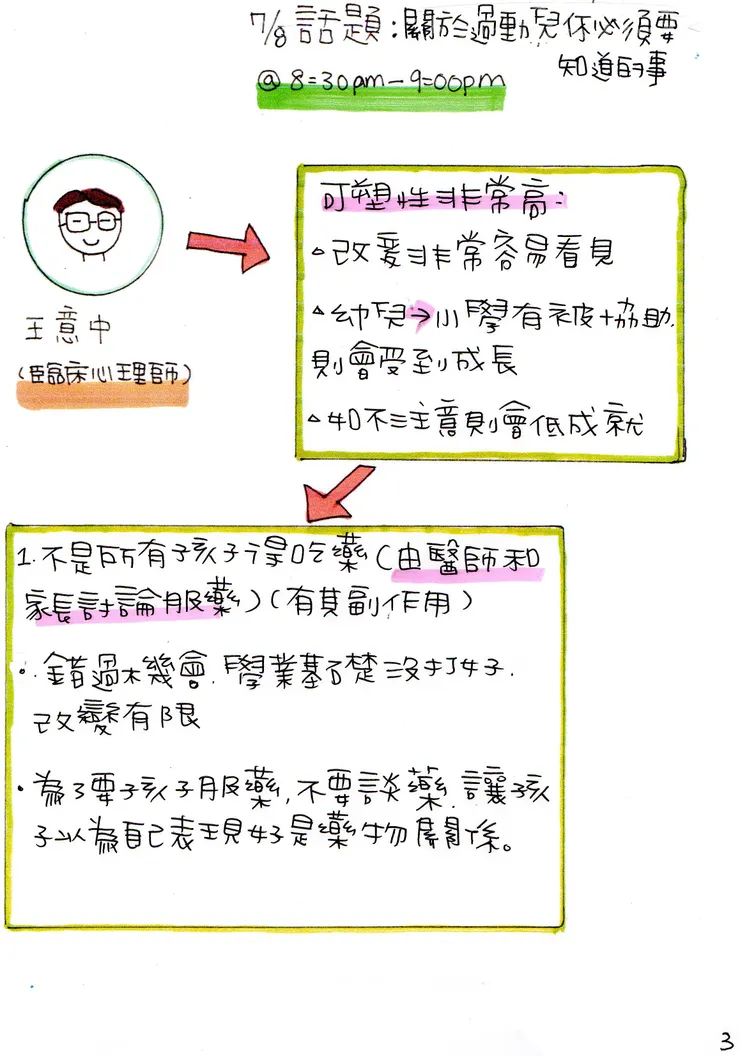 7/8 話題:關於過動兒你必須要
知道的事
@ 8:30pm-9:00pm
王意中
(臨床心理師)
可塑性非常高:
△改變非常容易看見
△幼兒→小學有被協助,
則會受到成長
△如不注意則會低成就
1. 不是所有孩子得吃藥(由醫師和
家長討論服藥)(有其副作用)
•. 錯過機會, 學業基礎沒打好,
改變有限
• 為了要孩子服藥, 不要談藥, 讓孩
子以為自己表現好是藥物關係。
3